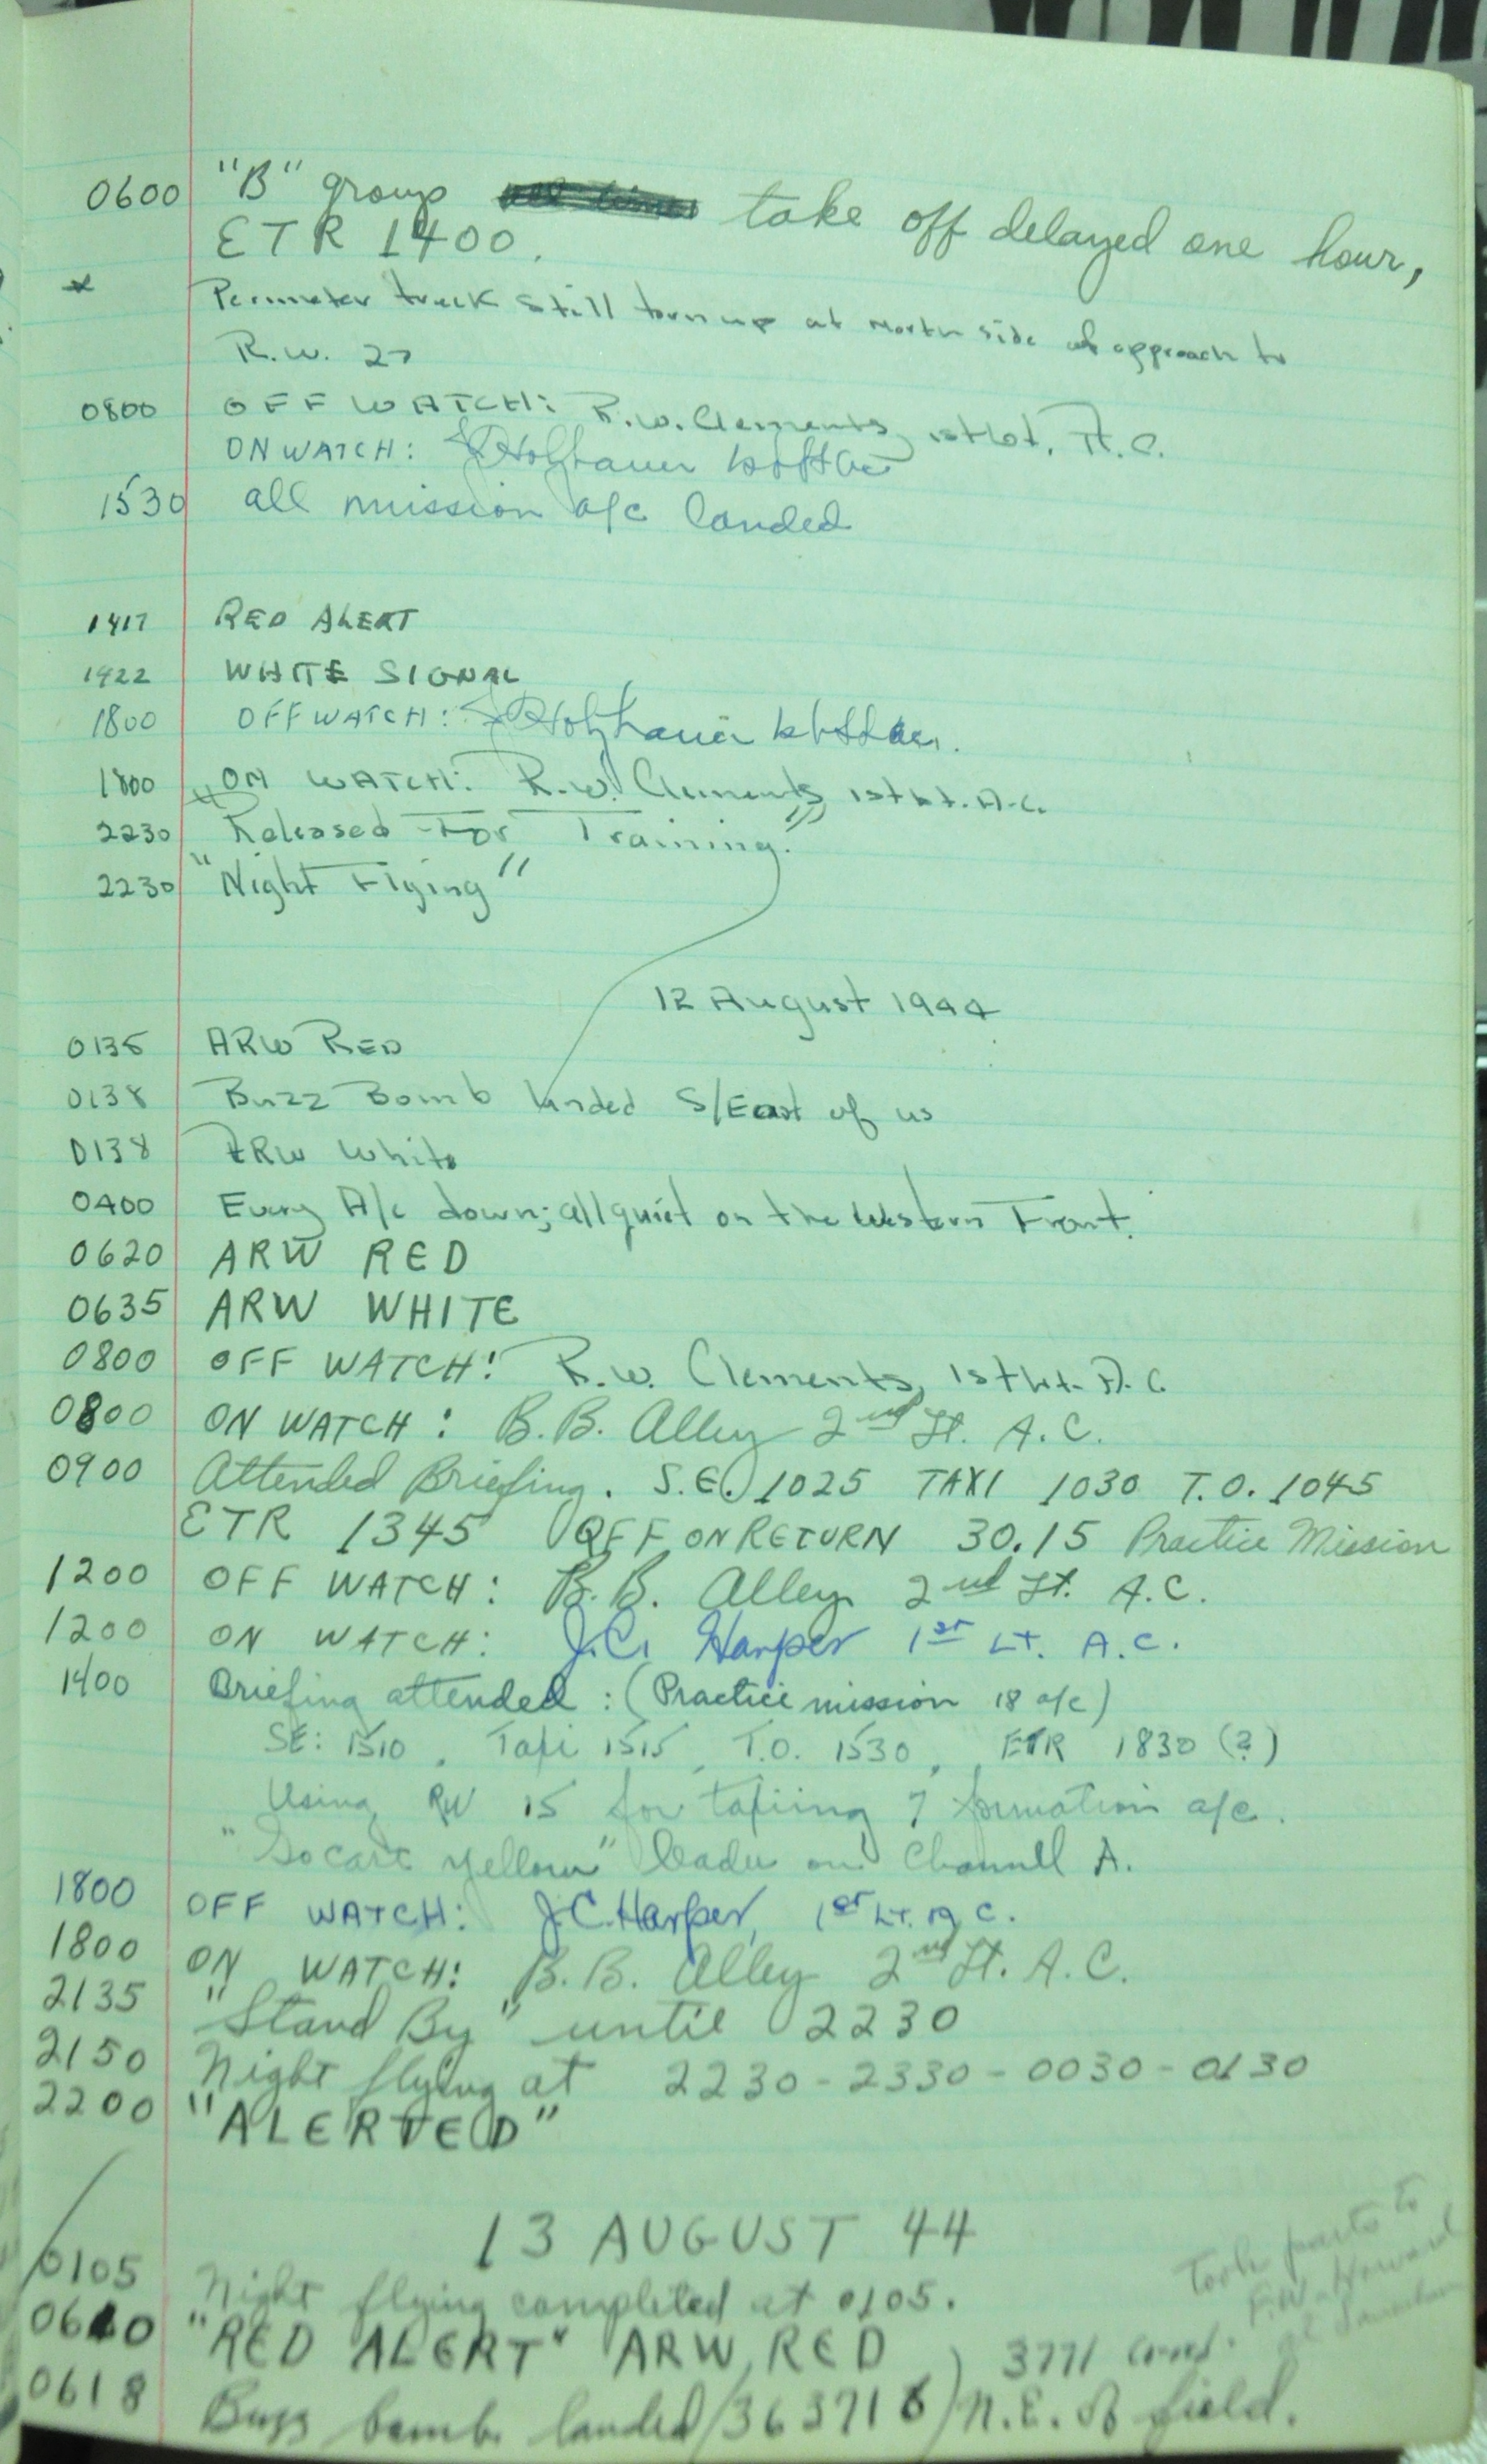 0600 "B" group take off delayed one hour,
ETR 1400.
* Perimeter track still torn up at North side of approach to
R.W. 27
0800 OFF WATCH: R.W. Clements, 1st Lt. A.C.
ON WATCH:
1530 all mission a/c landed
1417 RED ALERT
1422 WHITE SIGNAL
1800 OFF WATCH:
1800 ON WATCH: R.W. Clements, 1st Lt. A.C.
2230 "Released For Training."
2230 "Night Flying"
12 August 1944
0135 ARW RED
0138 Buzz Bomb landed S/East of us
0138 ARW White
0400 Every A/c down; all quiet on the Western Front.
0620 ARW RED
0635 ARW WHITE
0800 OFF WATCH: R.W. Clements, 1st Lt. A.C.
0800 ON WATCH: B.B. Alley 2nd Lt. A.C.
0900 Attended Briefing. S.E. 1025 TAXI 1030 T.O. 1045
ETR 1345 QFF ON RETURN 30.15 Practice Mission
1200 OFF WATCH: B.B. Alley 2nd Lt. A.C.
1200 ON WATCH: J.C. Harper 1st Lt. A.C.
1400 Briefing attended: (Practice mission 18 a/c)
SE: 1510, Taxi 1515, T.O. 1530, ETR 1830 (?)
Using RW 15 for taxiing 7 formation a/c.
"Socart yellow" leader on Channell A.
1800 OFF WATCH: J.C. Harper, 1st Lt. A.C.
1800 ON WATCH: B.B. Alley 2nd Lt. A.C.
2135 "Stand By" until 2230
2150 Night flying at 2230 - 2330 - 0030 - 0130
2200 "ALERTED"
13 AUGUST 44
0105 Night flying completed at 0105.
Took parts to
F.W. Howard
at
0610 "RED ALERT" ARW RED
3771
0618 Buzz bomb landed (363718) N.E. of field.